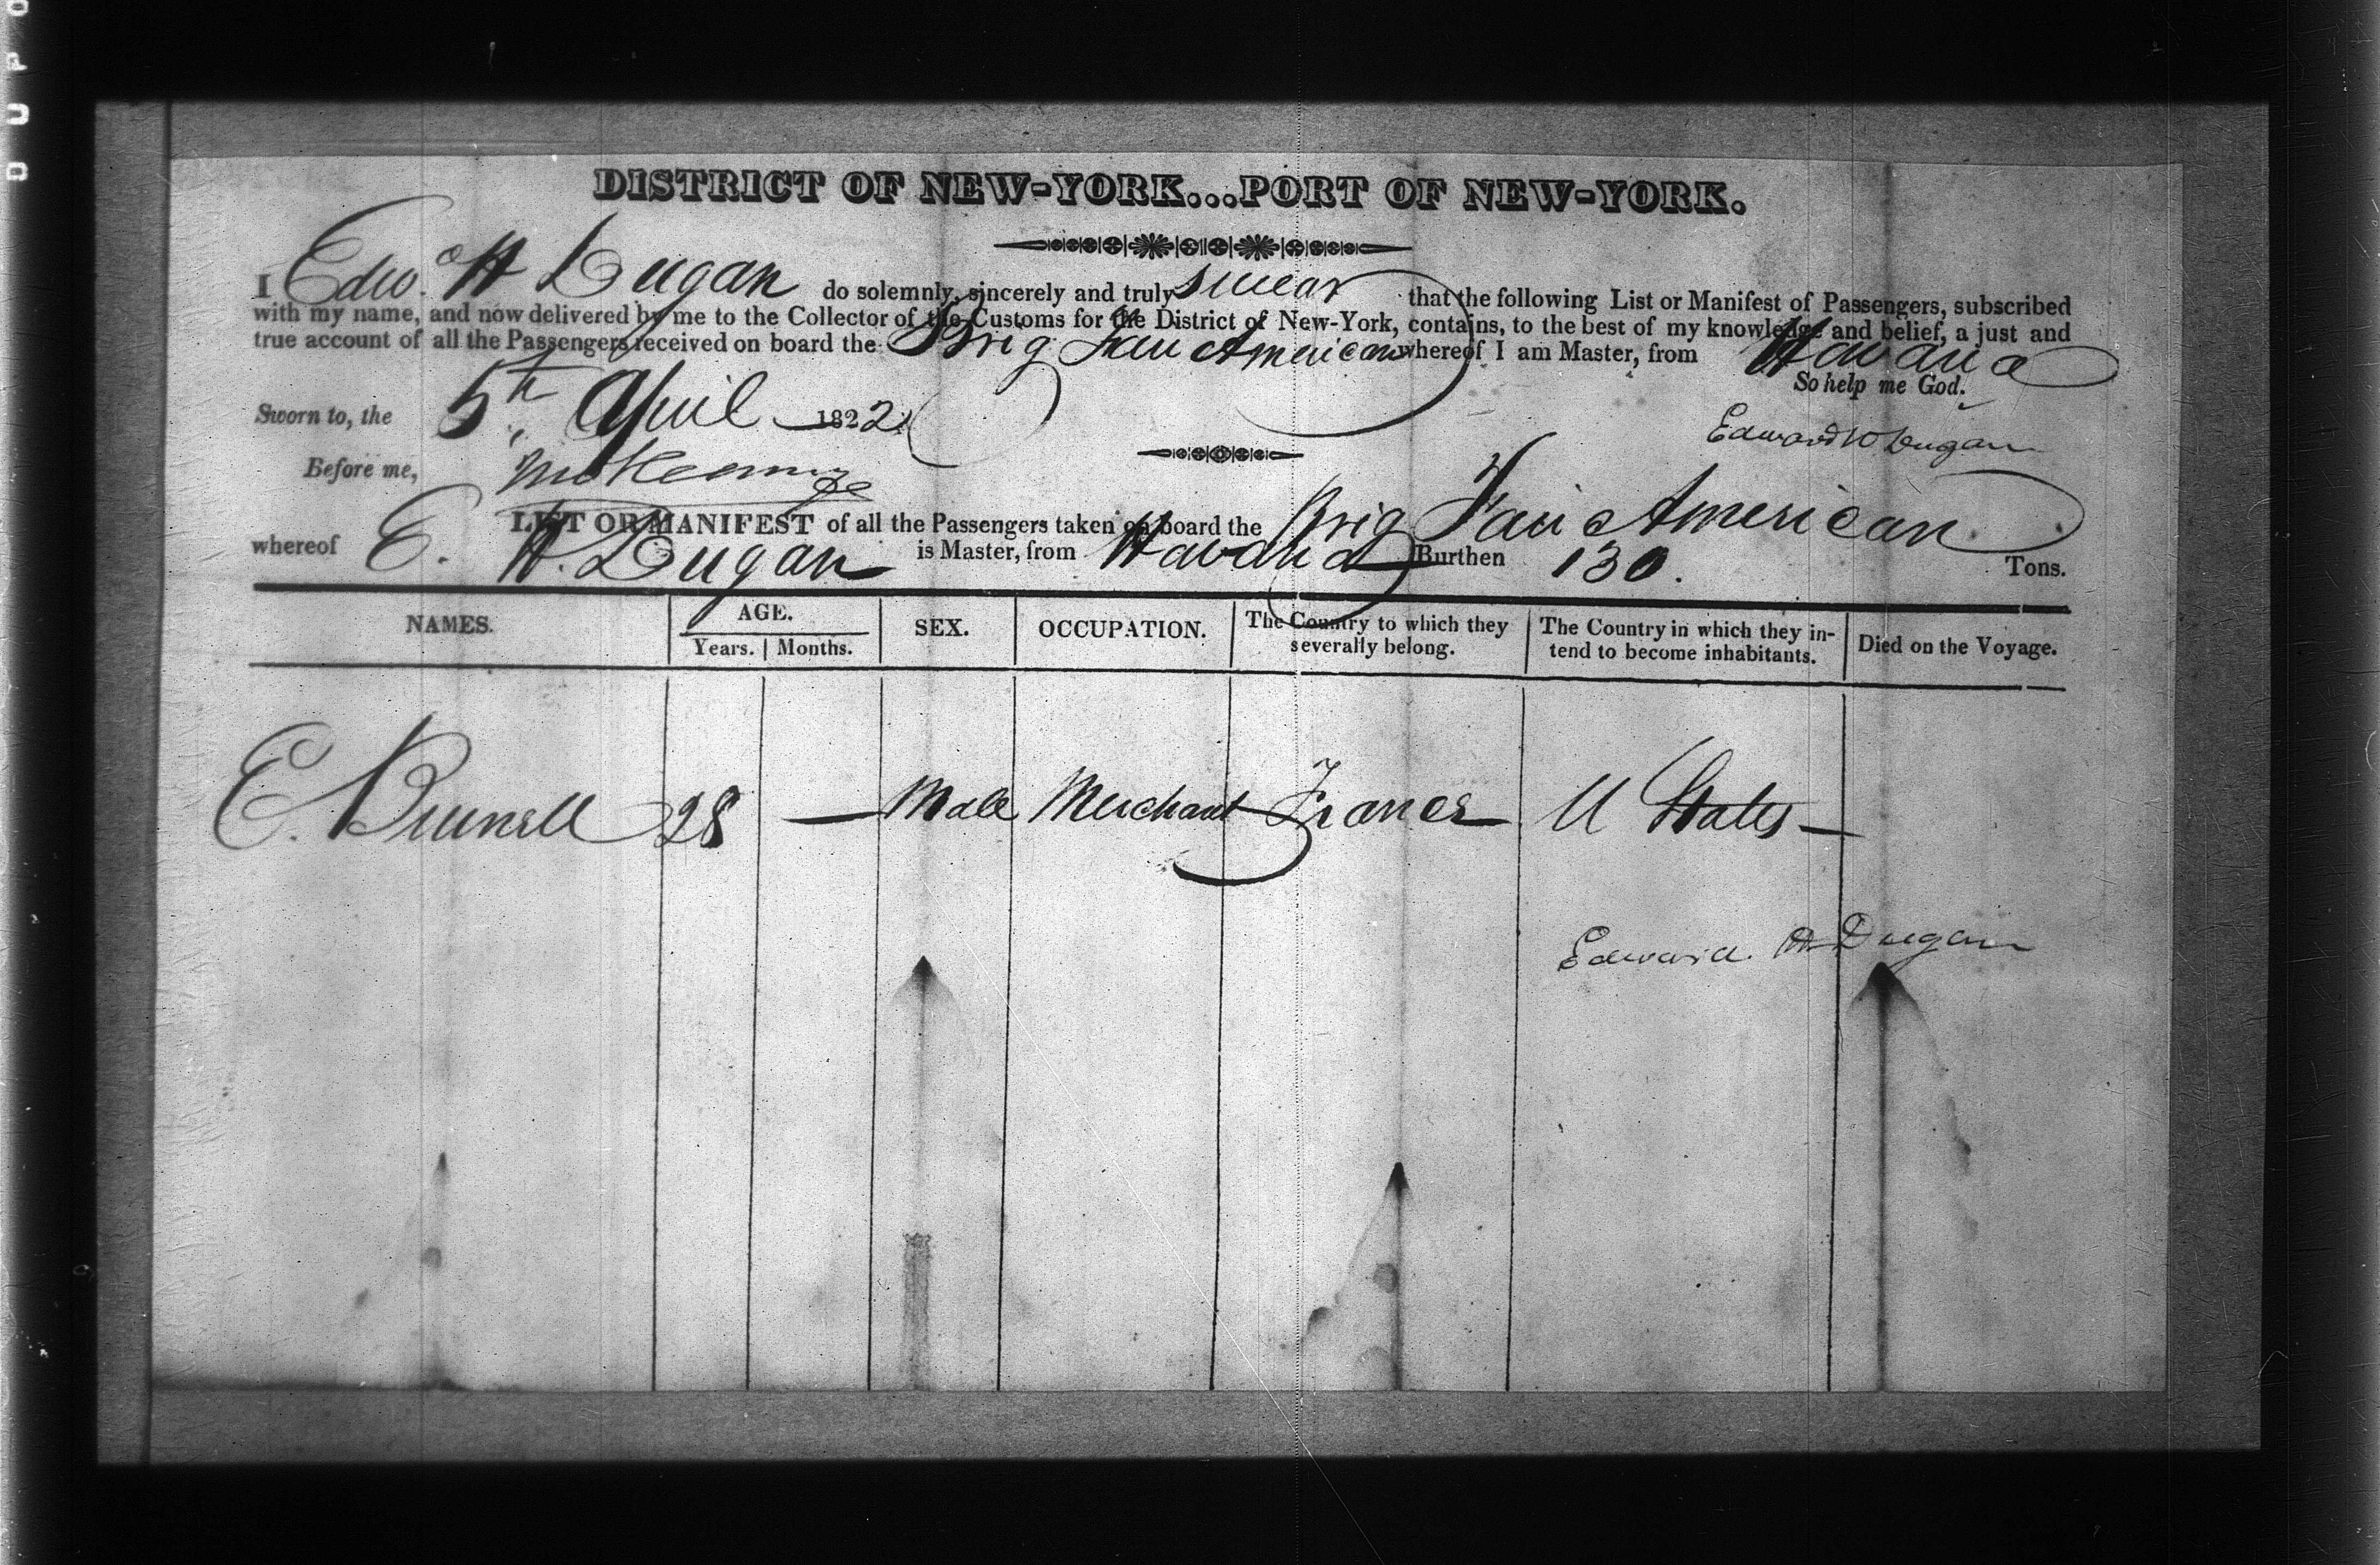 DISTRICT OF NEW-YORK...PORT OF NEW-YORK.
I Edwd. H Dugan do solemnly, sincerely and truly swear that the following List or Manifest of Passengers, subscribed
with my name, and now delivered by me to the Collector of the Customs for the District of New-York, contains, to the best of my knowledge and belief, a just and
true account of all the Passengers received on board the Brig Fair American whereof I am Master, from Havana
So help me God.
Sworn to, the 5th April 1822
Edward H Dugan
Before me,
LIST OR MANIFEST of all the Passengers taken on board the Brig Fair American
whereof E. H. Dugan is Master, from Havana Burthen 130. Tons.
NAMES. AGE. Years. Months. SEX. OCCUPATION. The Country to which they severally belong. The Country in which they intend to become inhabitants. Died on the Voyage.
E. Brunell 28 — Male Merchant France U States —
Edward H Dugan
DUPO